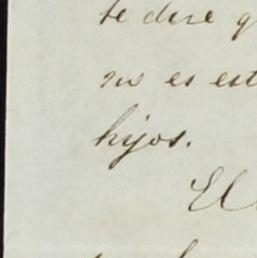 te dire q
no es est
hijos.
El